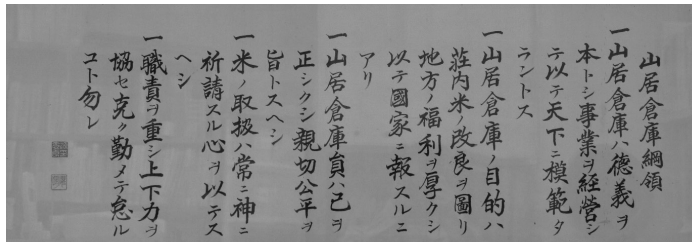 山居倉庫綱領
一山居倉庫ハ德義ヲ
本トシ事業ヲ経營シ
テ以テ天下ニ模範タ
ラントス
一山居倉庫ノ目的ハ
荘内米ノ改良ヲ圖リ
地方ノ福利ヲ厚クシ
以テ國家ニ報スルニ
アリ
一山居倉庫員ハ己ヲ
正シクシ親切公平ヲ
旨トスヘシ
一米ノ取扱ハ常ニ神ニ
祈請スル心ヲ以テス
ヘシ
一職責ヲ重シ上下力ヲ
協セ克ク勤メテ怠ル
コト勿レ